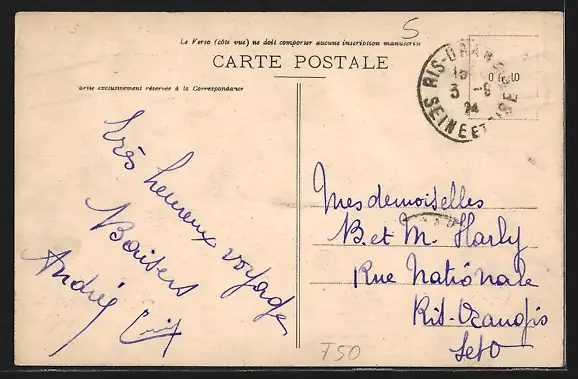 5
Le Verso (côté vue) ne doit comporter aucune inscription manuscrite
CARTE POSTALE
Partie exclusivement réservée à la Correspondance
RIS-ORANGIS
3 -6
24
SEINE ET OISE
Très heureux voyage
Baisers
Andrée
Mesdemoiselles
B et M. Harly
Rue Nationale
Ris-Orangis
Set O
750